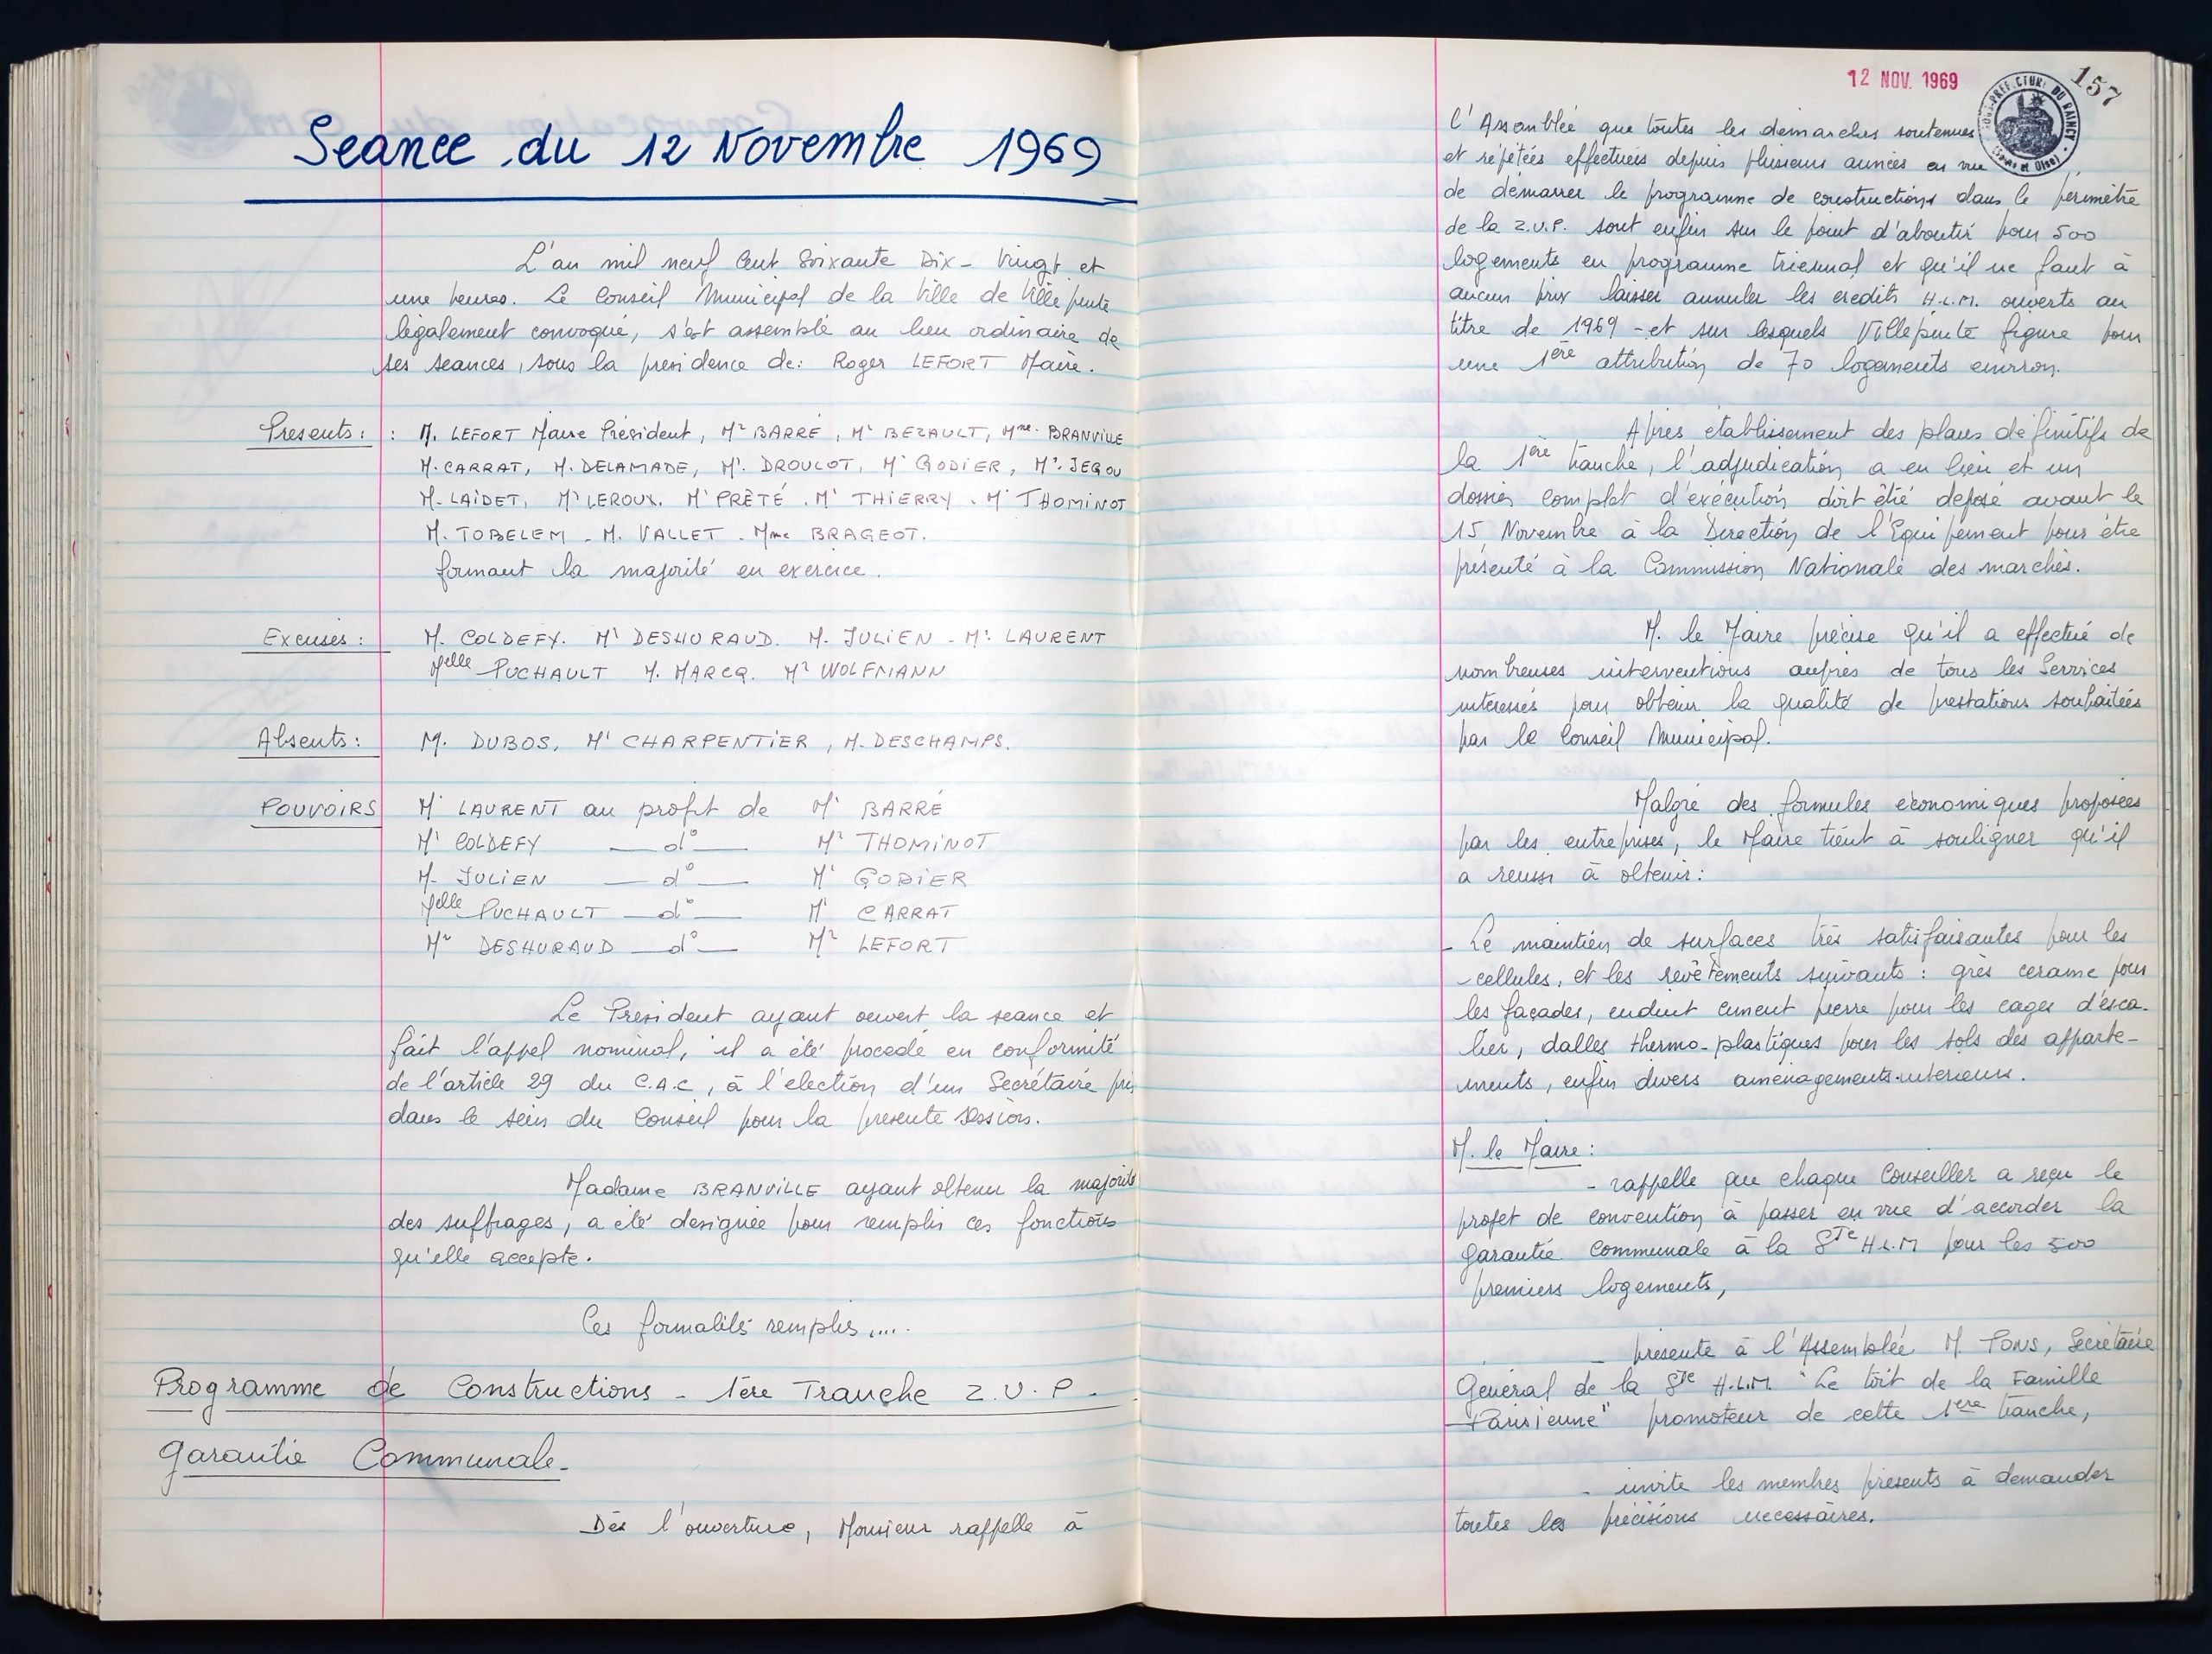 Seance du 12 Novembre 1969
L'an mil neuf Cent Soixante Dix - Vingt et
une heures. Le Conseil Municipal de la Ville de Villepinte
légalement convoqué, s'est assemblé au lieu ordinaire de
ses seances, sous la presidence de: Roger LEFORT Maire.
Presents: : M. LEFORT Maire Président, Mr BARRÉ, Mr BEZAULT, Mme BRANVILLE
M. CARRAT, M. DELAMADE, Mr. DROULOT, Mr GODIER, Mr. JEGOU
M. LAIDET, Mr LEROUX. Mr PRÊTÉ. Mr THIERRY. Mr THOMINOT
M. TOBELEM - M. VALLET - Mme BRAGEOT.
formant la majorité en exercice.
Excusés: M. COLDEFY. Mr DESHURAUD. M. JULIEN - Mr. LAURENT
Melle PUCHAULT M. MARCQ. Mr WOLFMANN
Absents: M. DUBOS, Mr CHARPENTIER, M. DESCHAMPS.
POUVOIRS Mr LAURENT au profit de Mr BARRÉ
Mr COLDEFY — d° — Mr THOMINOT
M. JULIEN — d° — Mr GODIER
Melle PUCHAULT — d° — Mr CARRAT
Mr DESHURAUD — d° — Mr LEFORT
Le President ayant ouvert la seance et
fait l'appel nominal, il a été procédé en conformité
de l'article 29 du C.A.C, à l'election d'un Secrétaire pris
dans le sein du Conseil pour la presente session.
Madame BRANVILLE ayant obtenu la majorité
des suffrages, a été designée pour remplir ces fonctions
qu'elle accepte.
Ces formalités remplies,....
Programme de Constructions - 1ère Tranche Z.U.P.
Garantie Communale.
Dès l'ouverture, Monsieur rappelle à
12 NOV. 1969
157
SOUS-PREFECTURE DU RAINCY
(Seine et Oise)
l'Assemblée que toutes les démarches soutenues
et répétées effectuées depuis plusieurs années en vue
de démarrer le programme de constructions dans le périmètre
de la Z.U.P. sont enfin sur le point d'aboutir pour 500
logements en programme triennal et qu'il ne faut à
aucun prix laisser annuler les credits H.L.M. ouverts au
titre de 1969 - et sur lesquels Villepinte figure pour
une 1ère attribution de 70 logements environ.
Après établissement des plans définitifs de
la 1ère tranche, l'adjudication a eu lieu et un
dossier complet d'exécution doit être déposé avant le
15 Novembre à la Direction de l'Equipement pour être
présenté à la Commission Nationale des marchés.
M. le Maire précise qu'il a effectué de
nombreuses interventions auprès de tous les Services
interessés pour obtenir la qualité de prestations souhaitées
par le Conseil Municipal.
Malgré des formules économiques proposées
par les entreprises, le Maire tient à souligner qu'il
a reussi à obtenir:
- Le maintien de surfaces très satisfaisantes pour les
cellules, et les revêtements suivants: grès cerame pour
les façades, enduit ciment pierre pour les cages d'esca-
lier, dalles thermo-plastiques pour les sols des apparte-
ments, enfin divers aménagements intérieurs.
M. le Maire:
- rappelle que chaque Conseiller a reçu le
projet de convention à passer en vue d'accorder la
garantie communale à la Sté H.L.M pour les 500
premiers logements,
- présente à l'Assemblée M. PONS, Secrétaire
Général de la Sté H.L.M. "Le toit de la Famille
Parisienne" promoteur de cette 1ère tranche,
- invite les membres présents à demander
toutes les précisions necessaires.